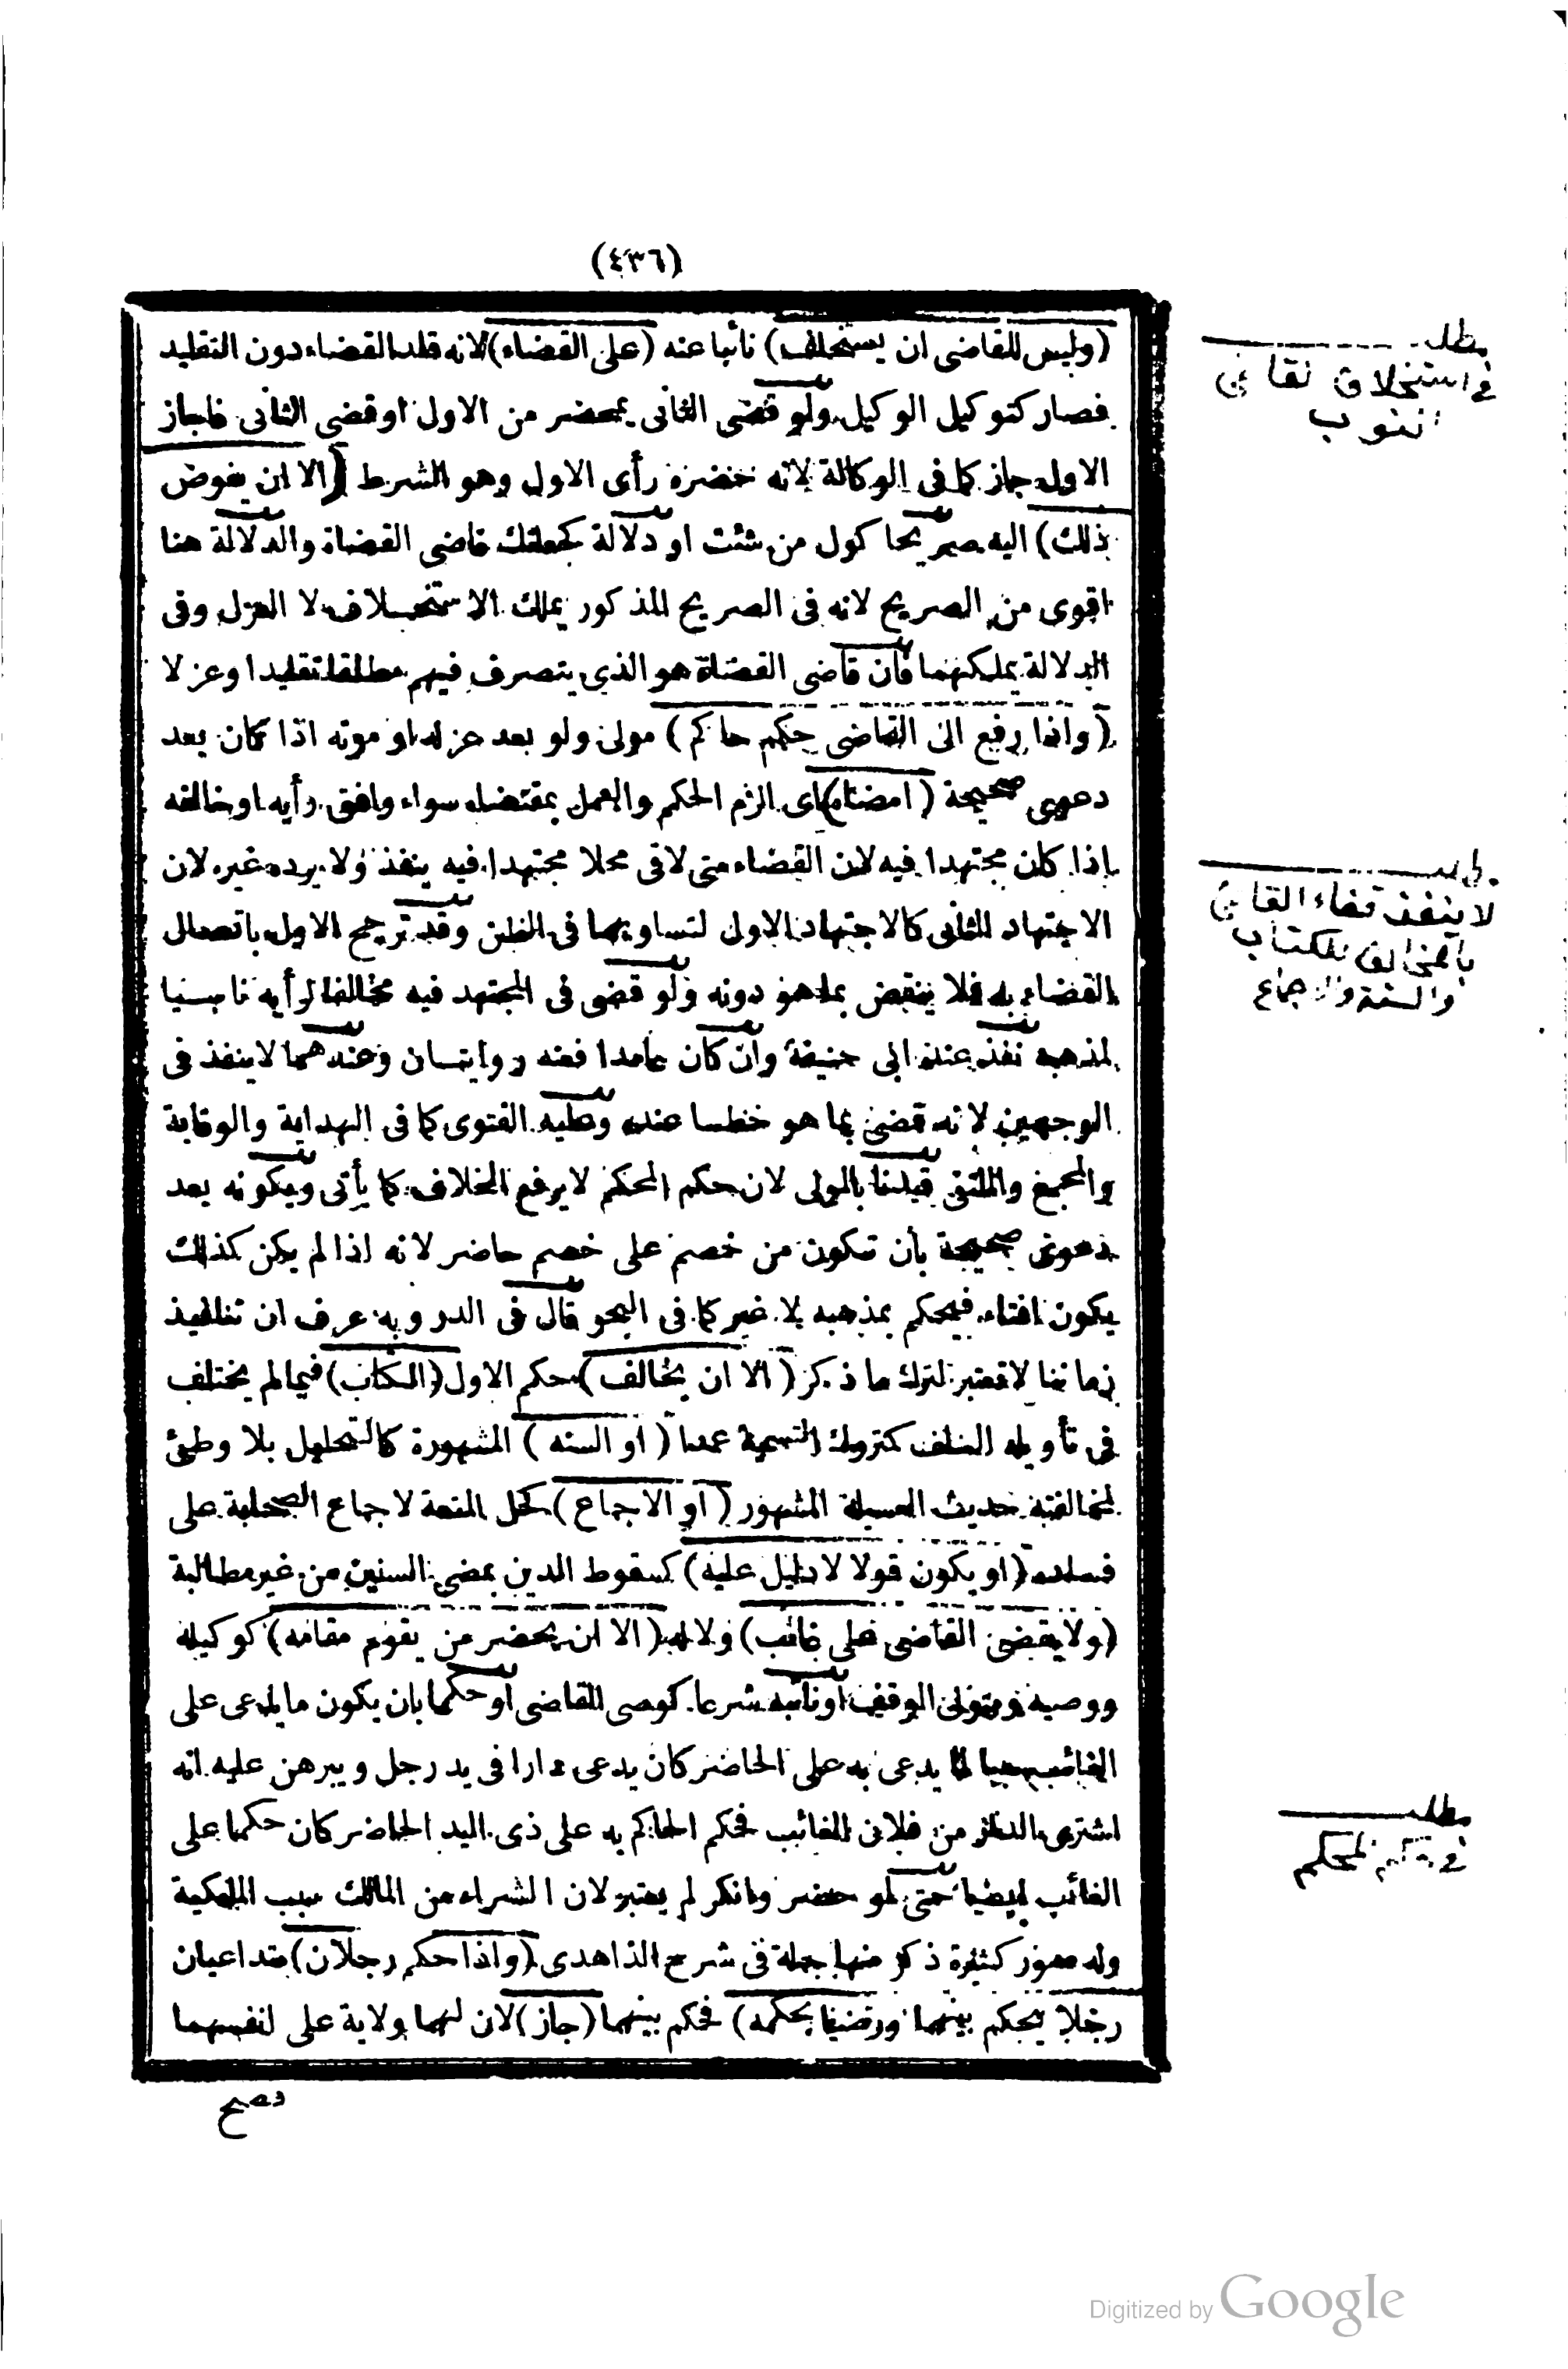 (٤٣٦)
(وليس للقاضى ان يستخلف) نائبا عنه (على القضاء) لانه قلد القضاء دون التقليد
فصار كتوكيل الوكيل ولو قضى الثانى بمحضر من الاول او قضى الثانى فاجاز
الاول جاز كما فى الوكالة لانه حضره رأى الاول وهو الشرط (الا ان يفوض
ذلك) اليه صريحا كول من شئت او دلالة كجعلتك قاضى القضاة والدلالة هنا
اقوى من الصريح لانه فى الصريح المذكور يملك الاستخلاف لا العزل وفى
الدلالة يملكهما فان قاضى القضاة هو الذى يتصرف فيهم مطلقا تقليدا وعزلا
(واذا رفع الى القاضى حكم حاكم) مولى ولو بعد عزله او موته اذا كان بعد
دعوى صحيحة (امضاه) اى الزم الحكم والعمل بمقتضاه سواء وافق رأيه او خالفه
اذا كان مجتهدا فيه لان القضاء متى لاقى محلا مجتهدا فيه ينفذ ولا يرده غيره لان
الاجتهاد الثانى كالاجتهاد الاول لتساويهما فى الظن وقد ترجح الاول باتصال
القضاء به فلا ينقض بما هو دونه ولو قضى فى المجتهد فيه مخالفا لرأيه ناسيا
لمذهبه نفذ عند ابى حنيفة وان كان عامدا ففيه روايتان وعندهما لا ينفذ فى
الوجهين لانه قضى بما هو خطأ عنده وعليه الفتوى كما فى الهداية والوقاية
والمجمع والملتقى قيدنا بالمولى لان حكم المحكم لا يرفع الخلاف كما يأتى وبكونه بعد
دعوى صحيحة بأن تكون من خصم على خصم حاضر لانه اذا لم يكن كذلك
يكون افتاء فيحكم بمذهبه لا غير كما فى البحر قال فى الدر وبه عرف ان تنافيذ
زماننا لا تعتبر لترك ما ذكر (الا ان يخالف) حكم الاول (الكتاب) فيما لم يختلف
فى تأويله السلف كمتروك التسمية عمدا (او السنه) المشهورة كالتحليل بلا وطئ
لمخالفته حديث العسيلة المشهور (او الاجماع) كحل المتعة لاجماع الصحابة على
فساده (او يكون قولا لا دليل عليه) كسقوط الدين بمضى السنين من غير مطالبة
(ولا يقضى القاضى على غائب) ولا له (الا ان يحضر من يقوم مقامه) كوكيله
ووصيه ومتولى الوقف او نائبه شرعا كوصى القاضى او حكما بان يكون ما يدعى على
الغائب سببا لما يدعى به على الحاضر كان يدعى دارا فى يد رجل ويبرهن عليه انه
اشترى الدار من فلان الغائب فحكم الحاكم به على ذى اليد الحاضر كان حكما على
الغائب ايضا حتى لو حضر وانكر لم يعتبر لان الشراء من المالك سبب الملكية
وله صور كثيرة ذكر منها جملة فى شرح الزاهدى (واذا حكم رجلان) متداعيان
رجلا يحكم بينهما ورضيا بحكمه) فحكم بينهما (جاز) لان لهما ولاية على انفسهما
فصح
مطلب
فى استخلاف القاضى
مطلب
لا ينفذ قضاء القاضى
بالمخالف للكتاب
والسنة والاجماع
مطلب
Digitized by Google